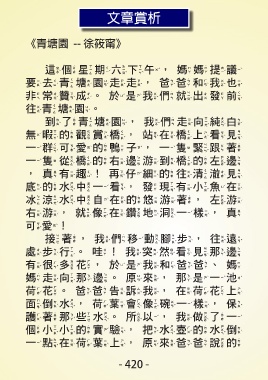 文章賞析
《青塘園 -- 徐筱甯》
這個星期六下午，媽媽提議
要去青塘園走走，爸爸和我也
非常贊成。於是我們就出發前
往青塘園。
到了青塘園，我們走向純白
無暇的觀賞橋，站在橋上看見
一群可愛的鴨子，一隻緊跟著
一隻從橋的右邊游到橋的左邊
，真有趣！再仔細的往清澈見
底的水中一看，發現有小魚在
冰涼水中自在的悠游著，左游
右游，就像在鑽地洞一樣，真
可愛！
接著，我們移動腳步，往遠
處步行。哇！我突然看見那邊
有很多花，於是我和爸爸、媽
媽走向那邊。原來，那是一池
荷花。爸爸告訴我，在荷花上
面倒水，荷葉會像碗一樣，保
護著那些水。所以，我做了一
個小小的實驗，把水壺的水倒
一點在荷葉上，原來爸爸說的
- 420 -